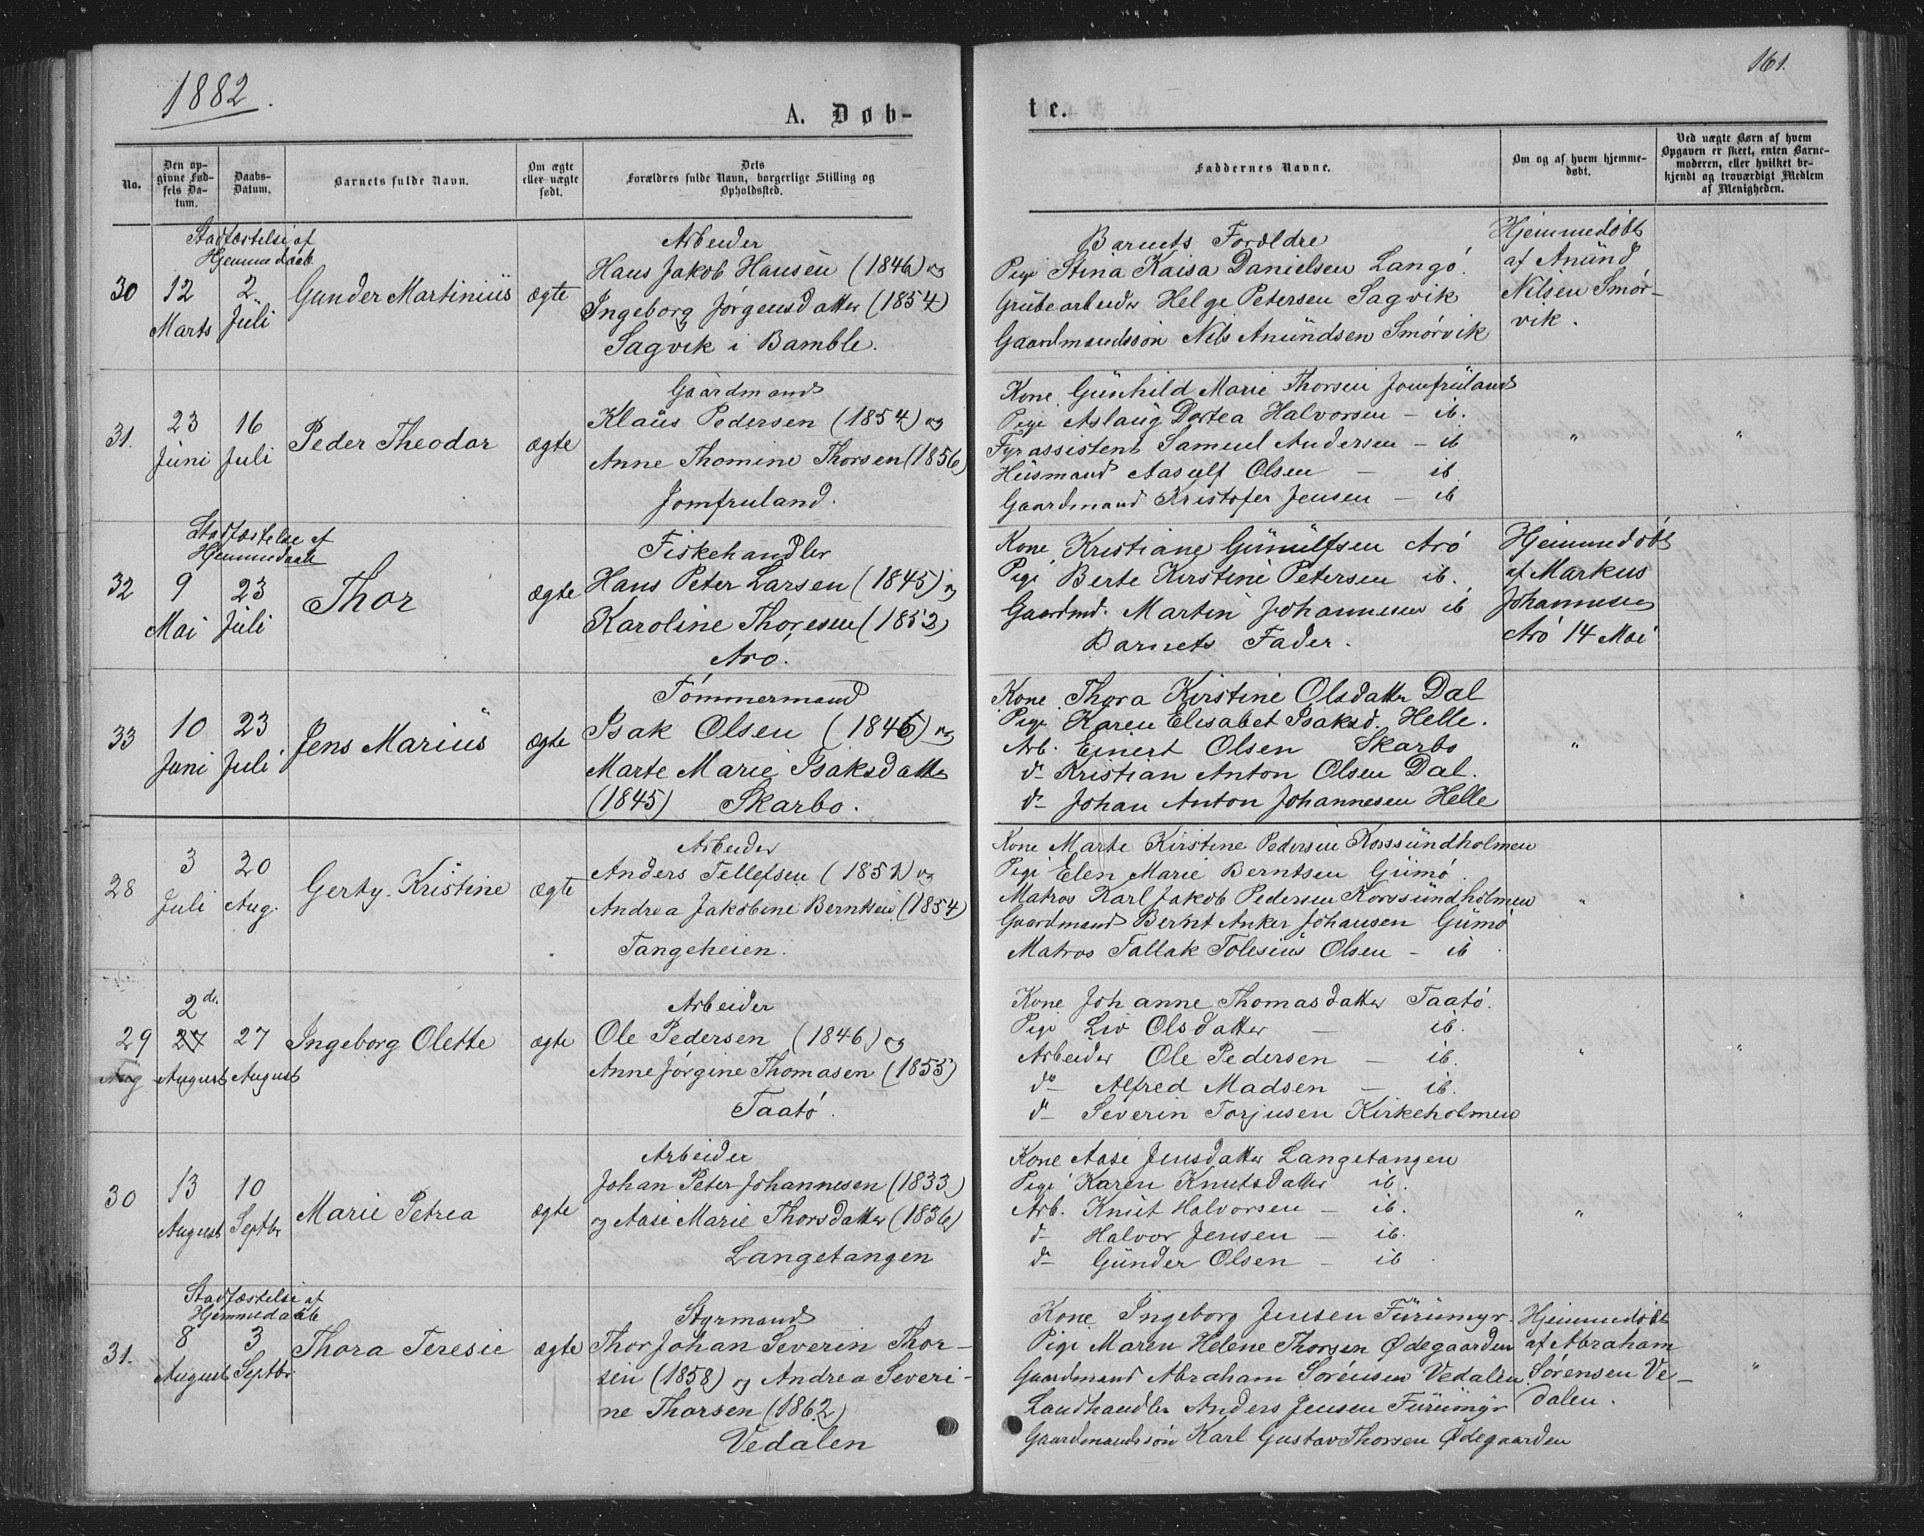 1882.
161.
A. Døb-
te.
No.
Den opgivne Fødsels Datum.
Daabs-Datum.
Barnets fulde Navn.
Om ægte eller uægte født.
Dets Forældres fulde Navn, borgerlige Stilling og Opholdssted.
Faddernes Navne.
Om og af hvem hjemmedøbt.
Ved uægte Børn af hvem Opgaven er skeet, enten Barnemoderen, eller hvilket bekjendt og troværdigt Medlem af Menigheden.
Stadfæstelse af
Hjemmedaab
30
12 Marts
2 Juli
Gunder Martinius
ægte
Arbeider
Hans Jakob Hansen (1846) og
Ingeborg Jørgensdatter (1854)
Sagvik i Bamble.
Barnets Forældre
Pige Stina Kaisa Danielsen Langö.
Grubearbeider Helge Petersen Sagvik
Gaardmandssön Nils Anundsen Smörvik
Hjemmedöbt
af Anund
Nilsen Smör-
vik.
31.
23 Juni
16 Juli
Peder Theodor
ægte
Gaardmand
Klaus Pedersen (1854) og
Anne Thomine Thorsen (1856)
Jomfruland.
Kone Gunhild Marie Thorsen Jomfruland
Pige Aslaug Dortea Halvorsen - ib.
Fyrassistent Samuel Andersen - ib
Huismand Aasulf Olsen - ib
Gaardmand Kristofer Jensen - ib
"
"
Stadfæstelse af
Hjemmedaab
32
9 Mai
23 Juli
Thor
ægte
Fiskehandler
Hans Peter Larsen (1845) og
Karoline Thoresen (1853)
Arø.
Kone Kristiane Gunulfsen Arö
Pige Berte Kirstine Petersen ib.
Gaardmd. Martin Johannesen ib
Barnets Fader.
Hjemmedöbt
af Markus
Johannesen
Arö 14 Mai
33
10 Juni
23 Juli
Jens Marius
ægte
Tömmermand
Isak Olsen (1846) og
Marte Marie Isaksdatter
(1845) Skarbo.
Kone Thora Kirstine Olsdatter Dal
Pige Karen Elisabet Isaksd. Helle.
Arb. Einert Olsen Skarbo
do Kristian Anton Olsen Dal.
do Johan Anton Johannesen Helle
"
28
3 Juli
20 Aug.
Gerty Kristine
ægte
Arbeider
Anders Tellefsen (1851) og
Andrea Jakobine Berntsen (1854)
Tangeheien.
Kone Marte Kirstine Pedersen Korssundholmen
Pige Elen Marie Berntsen Gumö.
Matros Karl Jakob Pedersen Korssundholmen
Gaardmand Bernt Anker Johansen Gumö
Matros Tallak Tolesius Olsen - ib
"
29
Aug
2de
27
August
27 August
Ingeborg Olette
ægte
Arbeider
Ole Pedersen (1846) og
Anne Jörgine Thomasen (1855)
Taatö.
Kone Johanne Thomasdatter Taatö.
Pige Liv Olsdatter - ib.
Arbeider Ole Pedersen - ib.
do Alfred Madsen - ib.
do Severin Torjusen Kirkeholmen
"
"
30
13 August
10 Septbr
Marie Petrea
ægte
Arbeider
Johan Peter Johannesen (1833)
og Aase Marie Thorsdatter (1836)
Langetangen
Kone Aase Jensdatter Langetangen
Pige Karen Knutsdatter ib.
Arb. Knut Halvorsen - ib.
do Halvor Jensen - ib.
do Gunder Olsen - ib
"
"
Stadfæstelse af
Hjemmedaab
31.
8 August
3 Septbr.
Thora Teresie
ægte
Styrmand
Thor Johan Severin Thor-
sen (1858) og Andrea Severi-
ne Thorsen (1862)
Vedalen
Kone Ingeborg Jensen Furumyr.
Pige Maren Helene Thorsen Ødegaarden
Gaardmand Abraham Sörensen Vedalen
Landhandler Anders Jensen Furumyr
Gaardmandssön Karl Gustav Thorsen Ødegaarden
Hjemmedöbt
af Abraham
Sörensen Ve-
dalen.
"